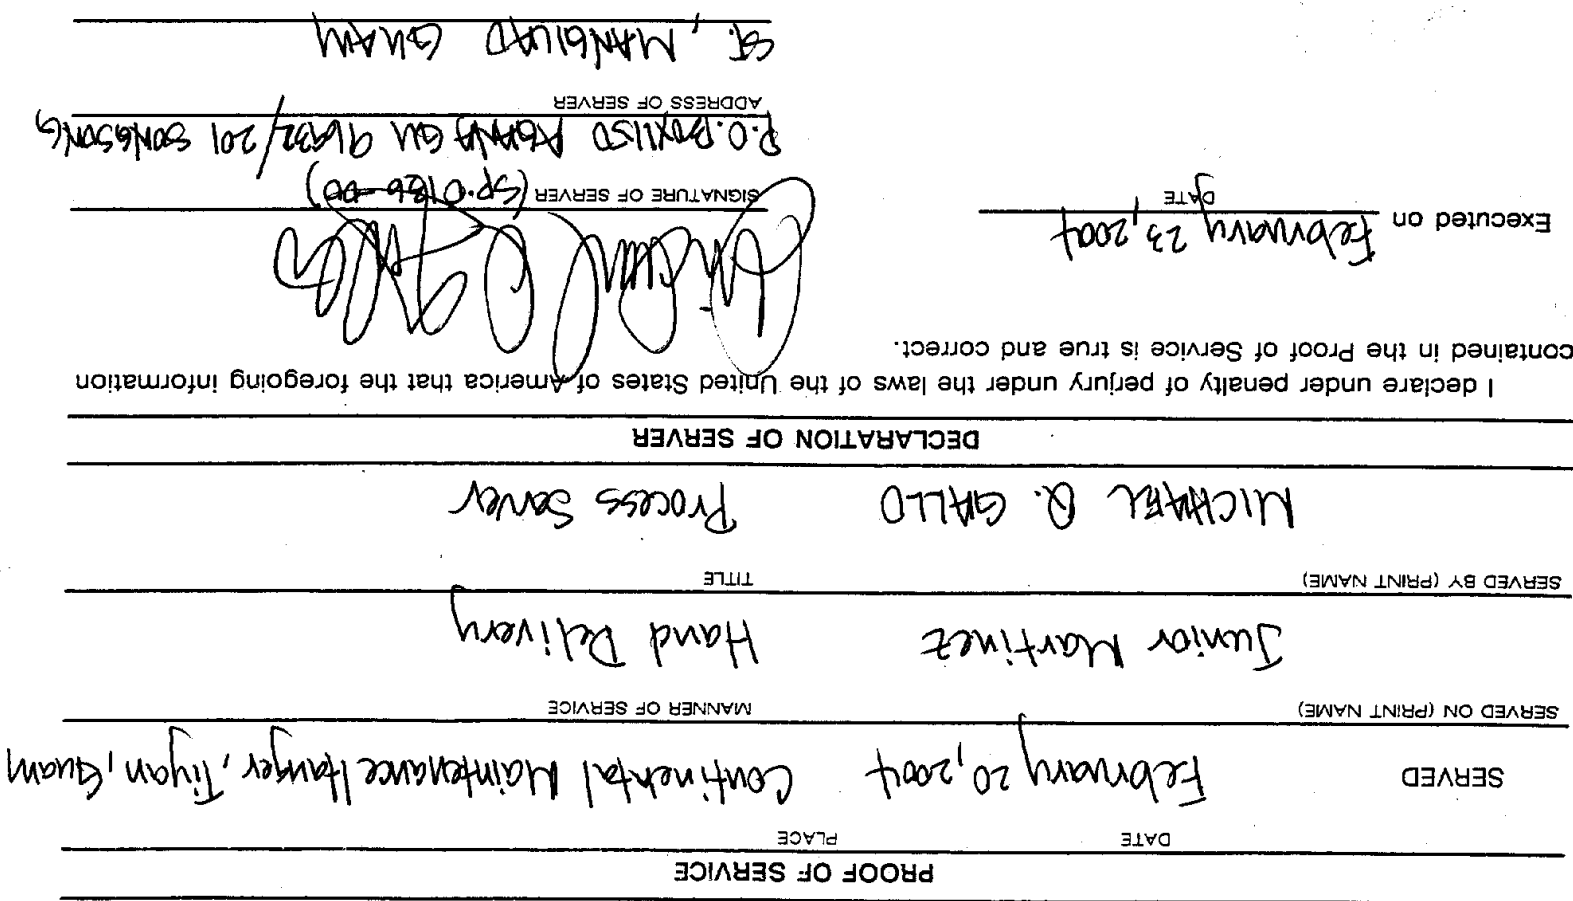 PROOF OF SERVICE
DATE PLACE
SERVED February 20, 2004 Continental Maintenance Hanger, Tiyan, Guam
SERVED ON (PRINT NAME) MANNER OF SERVICE
Junior Martinez Hand Delivery
SERVED BY (PRINT NAME) TITLE
MICHAEL Q. GALLO Process Server
DECLARATION OF SERVER
I declare under penalty of perjury under the laws of the United States of America that the foregoing information
contained in the Proof of Service is true and correct.
Executed on February 23, 2004
DATE
SIGNATURE OF SERVER (SP-0186-00)
P.O. BOX AGANA GU 96932/201 SONGSONG
ADDRESS OF SERVER
ST., MANGILAO GUAM